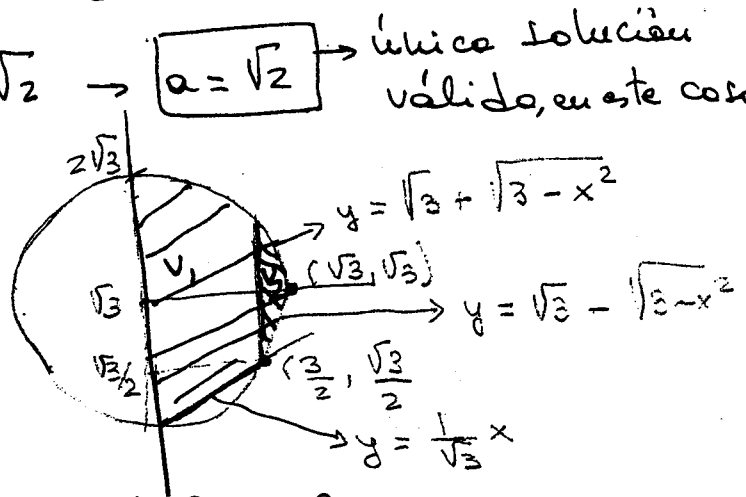 √2 → a = √2 → única solución
válida, en este caso
2√3
y = √3 + √(3 - x²)
V₁
(√3, √3)
√3
y = √3 - √(3 - x²)
√3/2
(3/2, √3/2
y = 1/√3 x